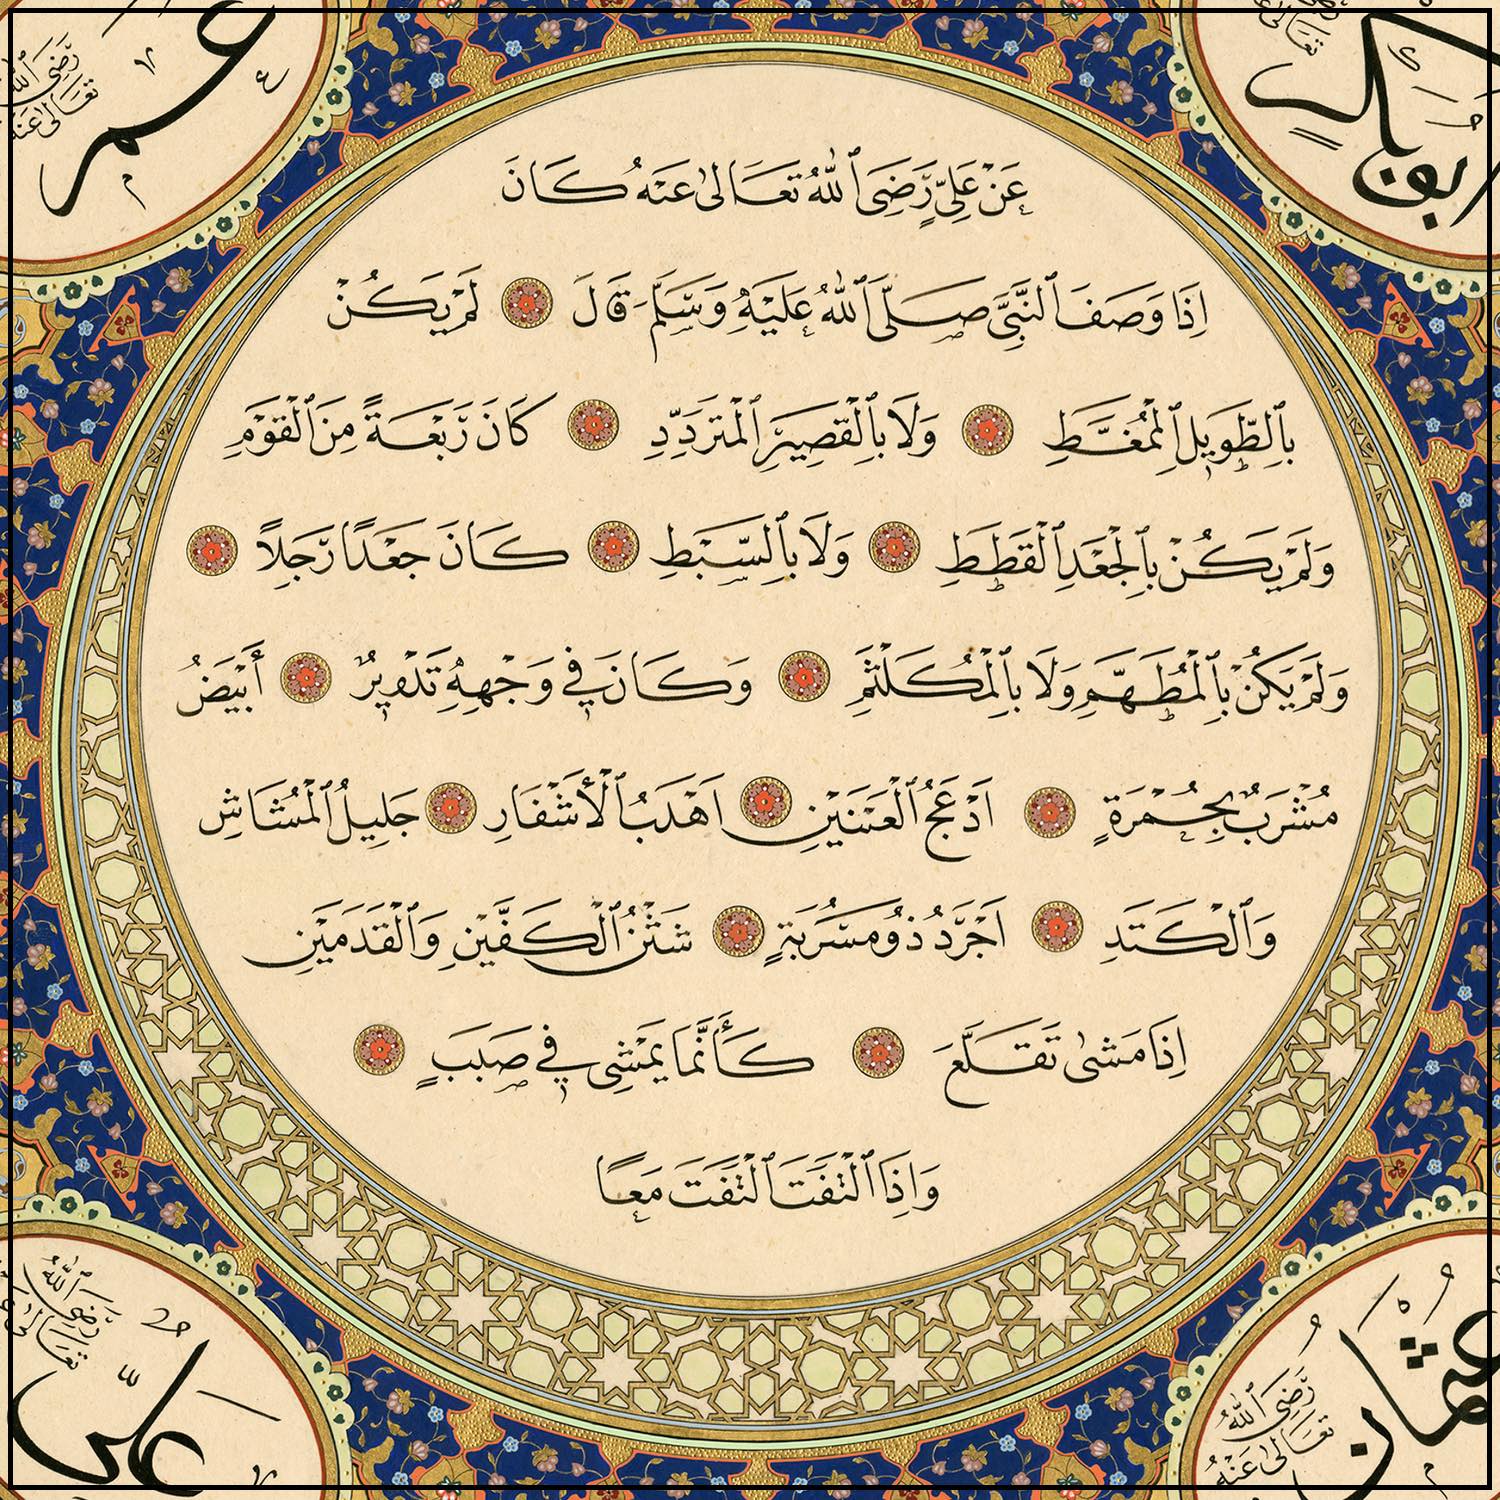 ابو بكر
رَضِيَ ٱللهُ تَعَالىٰ عَنْهُ
عمر
رَضِيَ ٱللهُ تَعَالىٰ عَنْهُ
عَنْ عَلِيٍّ رَّضِيَ ٱللهُ تَعَالىٰ عَنْهُ كَانَ
اِذَا وَصَفَ ٱلنَّبِيَّ صَلَّى ٱللهُ عَلَيْهِ وَسَلَّمَ قَالَ لَمْ يَكُنْ
بِٱلطَّوِيلِ ٱلْمُمَّغَطِ وَلَا بِٱلْقَصِيرِ ٱلْمُتَرَدِّدِ كَانَ رَبْعَةً مِنَ ٱلْقَوْمِ
وَلَمْ يَكُنْ بِٱلْجَعْدِ ٱلْقَطَطِ وَلَا بِٱلسَّبْطِ كَانَ جَعْدًا رَّجِلاً
وَلَمْ يَكُنْ بِٱلْمُطَهَّمِ وَلَا بِٱلْمُكَلْثَمِ وَكَانَ فِي وَجْهِهِ تَدْوِيرٌ أَبْيَضُ
مُشْرَبٌ بِحُمْرَةٍ اَدْعَجُ ٱلْعَيْنَيْنِ اَهْدَبُ ٱلْأَشْفَارِ جَلِيلُ ٱلْمُشَاشِ
وَٱلْكَتَدِ اَجْرَدُ ذُو مَسْرُبَةٍ شَثْنُ ٱلْكَفَّيْنِ وَٱلْقَدَمَيْنِ
اِذَا مَشىٰ تَقَلَّعَ كَأَنَّمَا يَمْشِي فِي صَبَبٍ
وَاِذَا ٱلْتَفَتَ ٱلْتَفَتَ مَعًا
عثمان
رَضِيَ ٱللهُ تَعَالىٰ عَنْهُ
على
رَضِيَ ٱللهُ تَعَالىٰ عَنْهُ